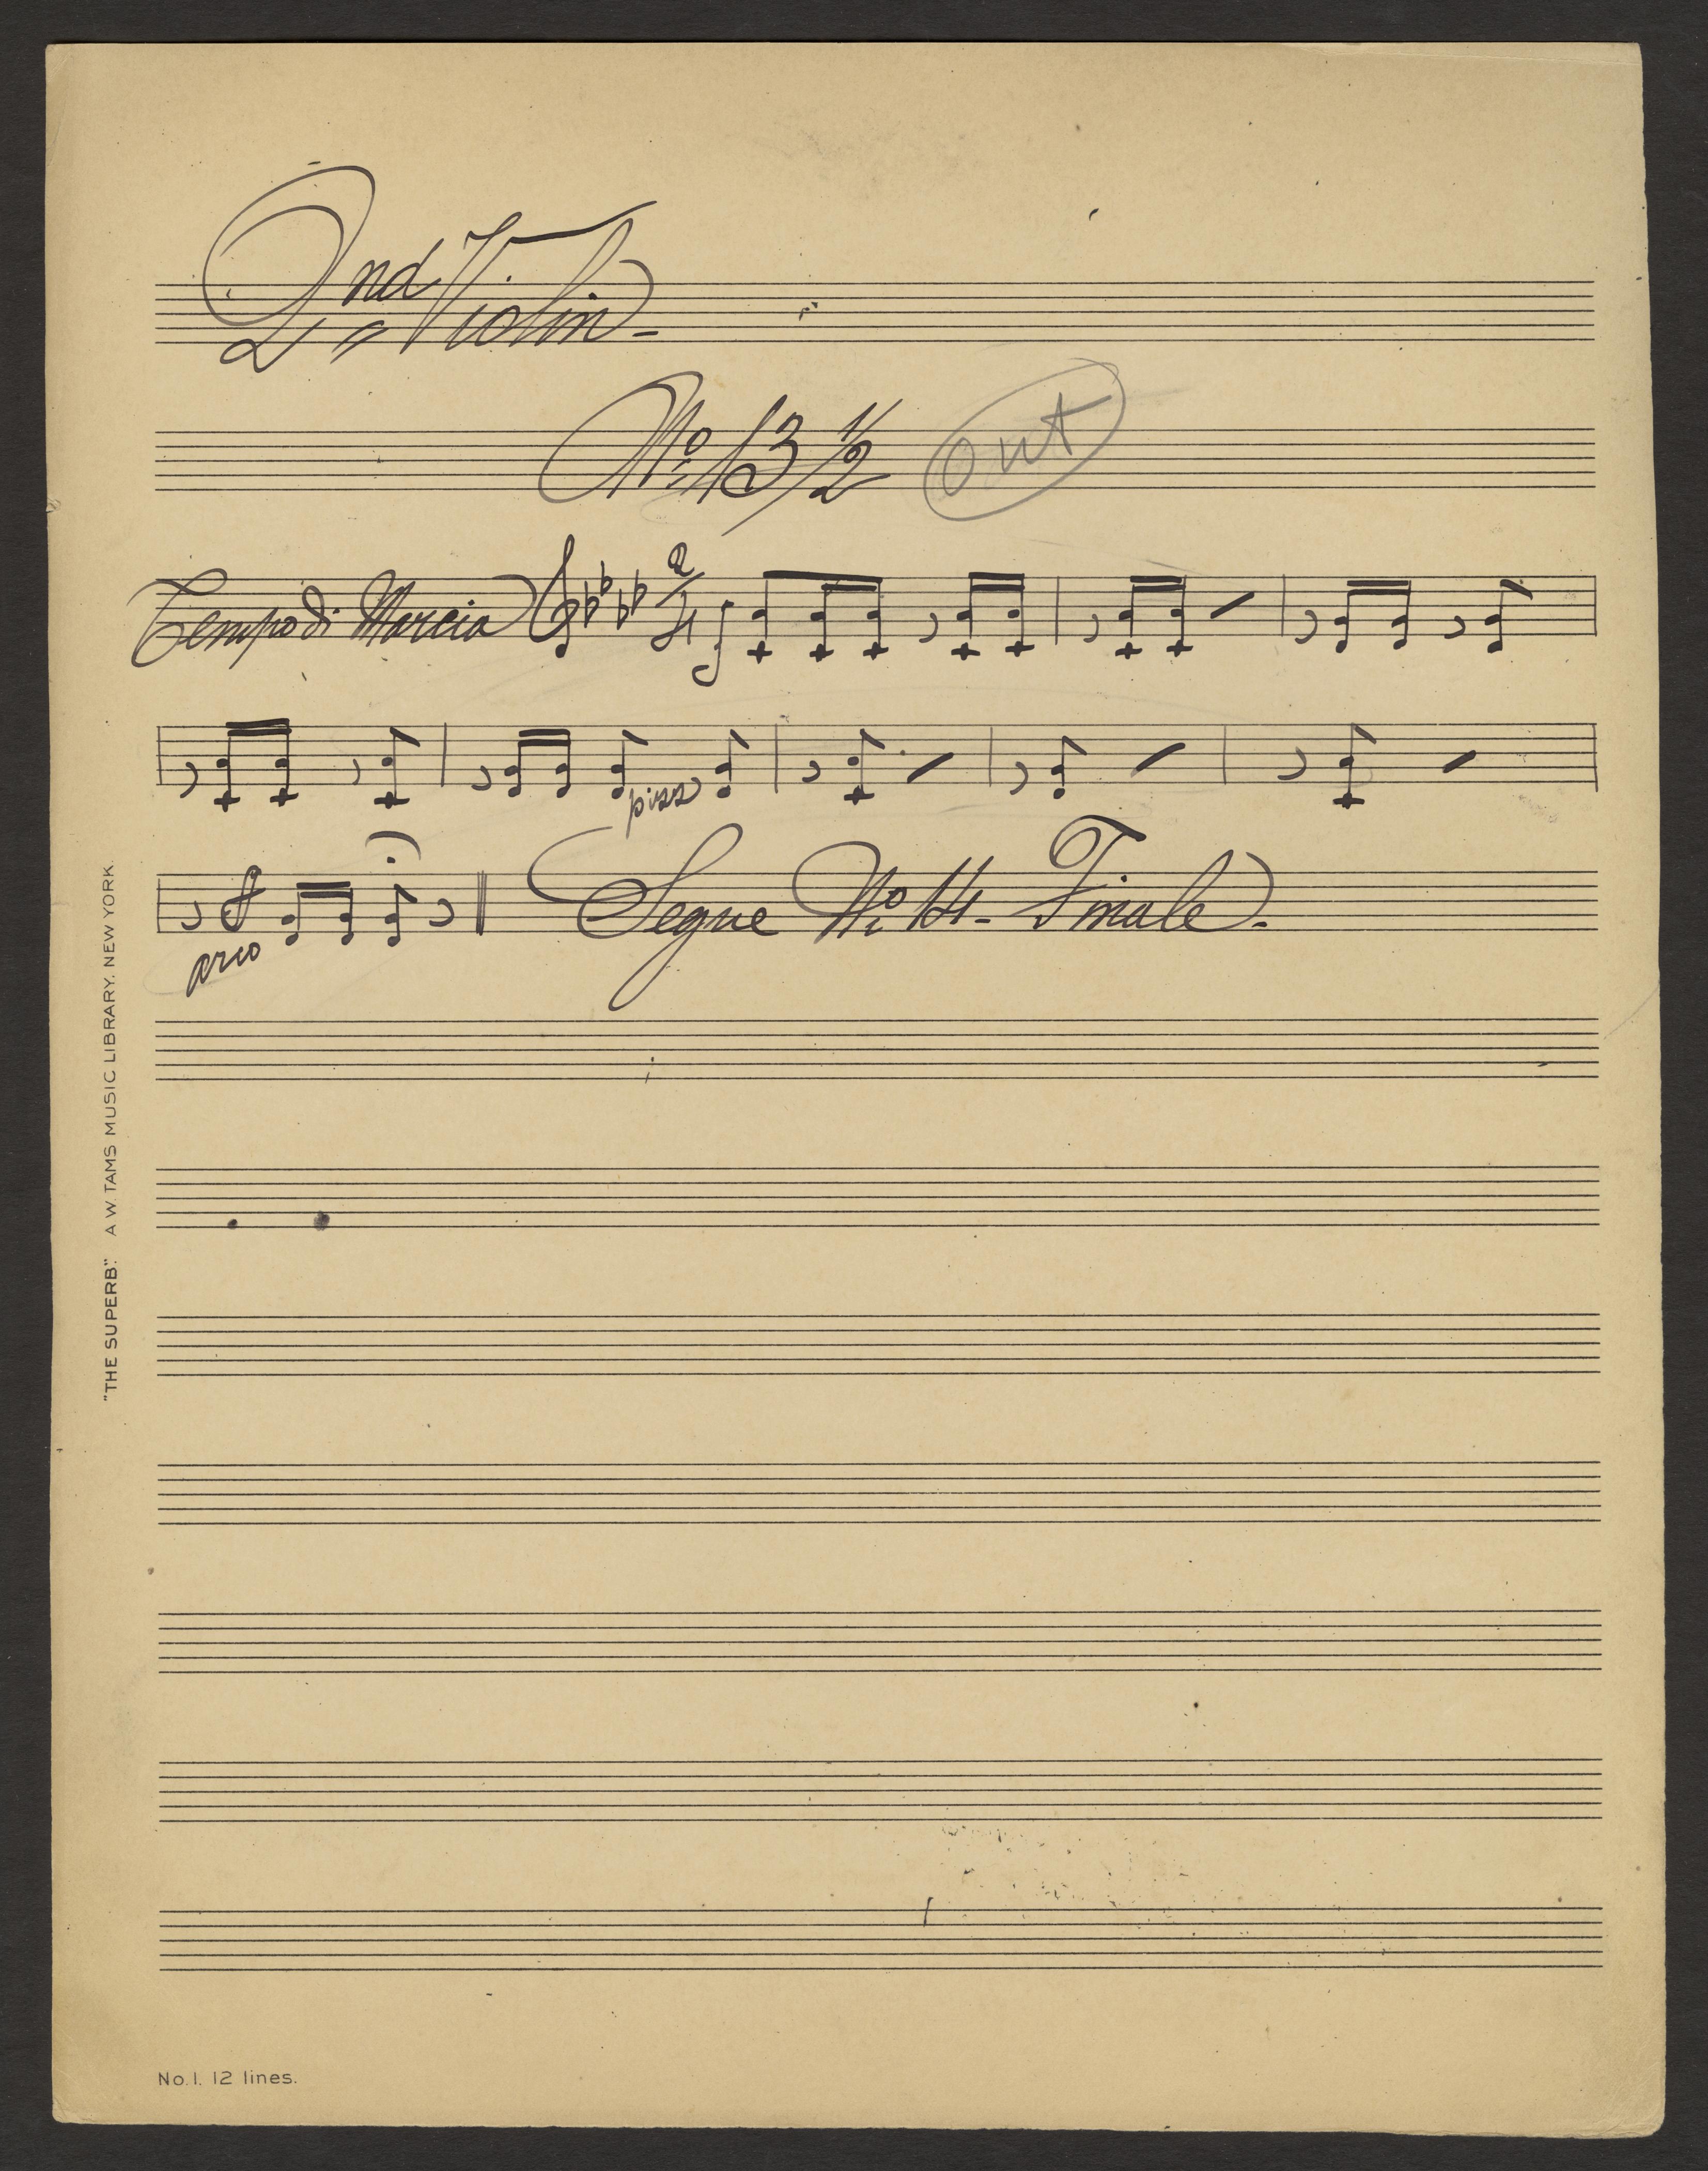 2nd Violin
No. 13 1/2 out
Tempo di Marcia 2/4 f
pizz
arco Segue No. 14 - Finale.
"THE SUPERB." A.W. TAMS MUSIC LIBRARY, NEW YORK.
No. 1. 12 lines.